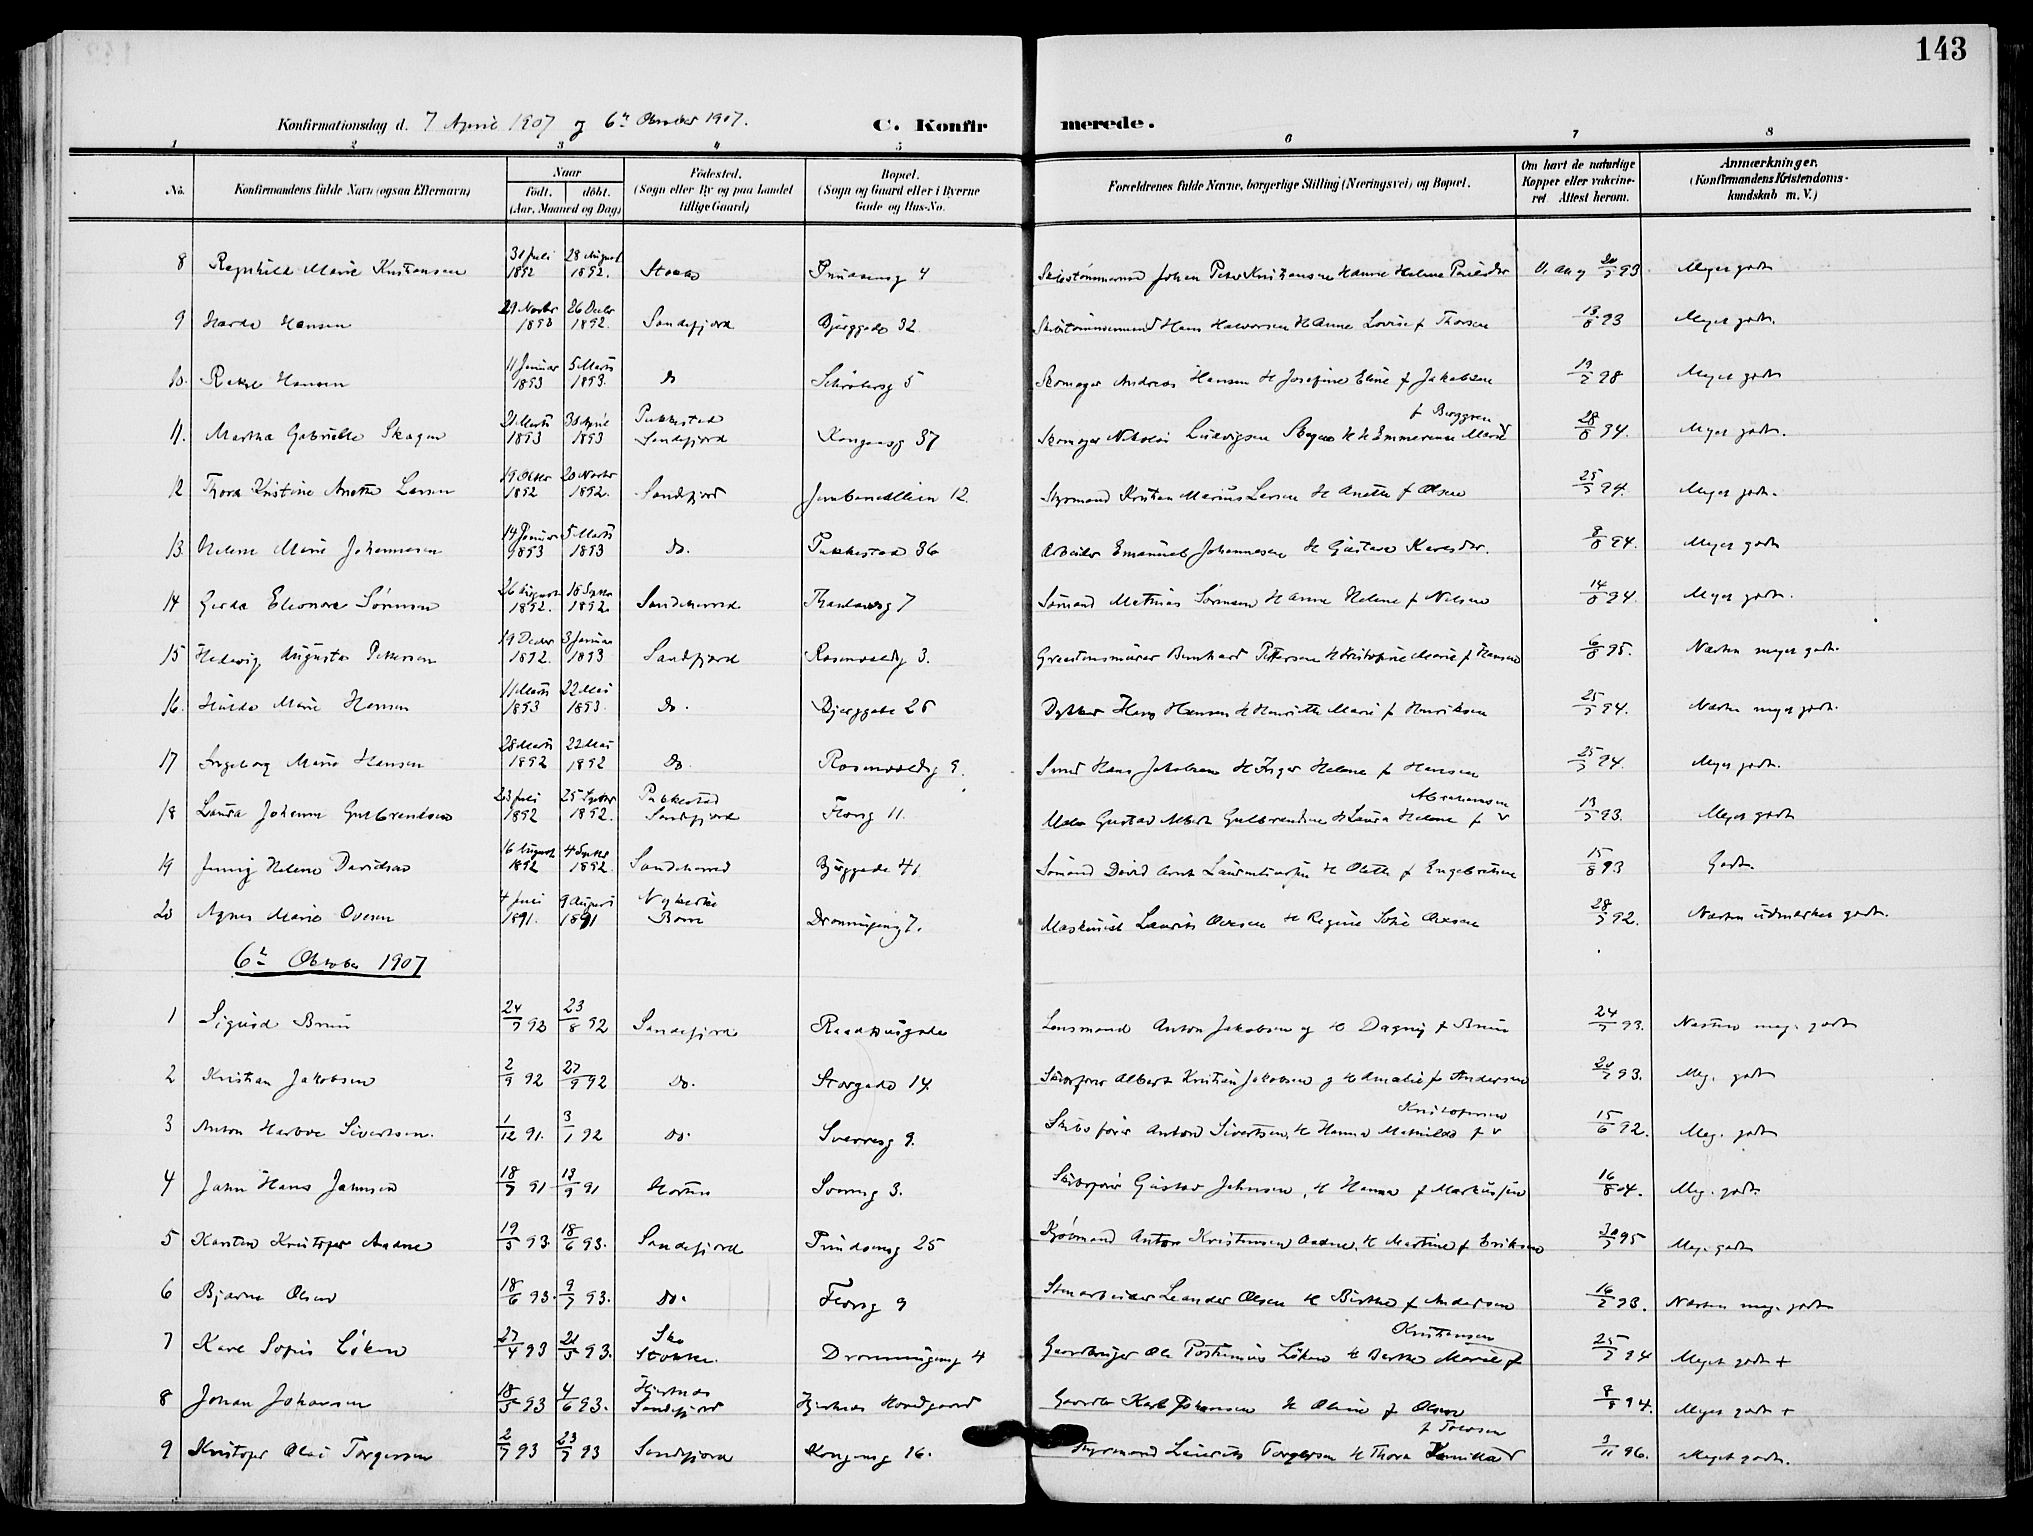 143
Konfirmationsdag d. 7 April 1907 og 6te Oktober 1907. C. Konfirmerede.
1 2 3 4 5 6 7 8
No. Konfirmandens fulde Navn (ogsaa Efternavn) Naar født. døbt. (Aar, Maaned og Dag) Fødested. (Sogn eller By og paa Landet tillige Gaard) Bopæl. (Sogn og Gaard eller i Byerne Gade og Hus-No. Forældrenes fulde Navne, borgerlige Stilling (Næringsvei) og Bopæl. Om havt de naturlige Kopper eller vakcineret. Attest herom. Anmærkninger. (Konfirmandens Kristendomskundskab m. V.)
8 Ragnhild Marie Kristiansen 31 Juli 1892 28 August 1892. Prindsensg 4 Skibstømmermand Johan Peter Kristiansen Hanne Helene 20/7 93 Meget godt
9 Hansen 29 Novbr 26 Decbr 1892. Sandefjord Bjerggada 32 Skibstømmermand Hans Halvorsen H Anne Lovise f Thorsen 13/8 93 Meget godt.
10. Hansen 11 Januar 1893 5 Marts 1893. do Schrøtersg 5 Skomager Andreas Hansen H Josefine Eline f Jakobsen 98 Meget godt
11. Martha Gabrielle Skagen 21 Marts 1893 30 April 1893 Pukkestad Sandefjord Kongensg 37 Skomager Nikolai Ludvigsen Skagen H Emmerense Marie f Berggren 28/8 94. Meget godt.
12 Thora Kristine Anette Larsen 19 Oktbr 1892 20 Novbr 1892. Sandefjord Jernbanealleen 12. Styrmand Kristian Marius Larsen H Anette f Olsen 25/7 94. Meget godt.
13. Helene Marie Johannesen 14 Januar 1893 5 Marts 1893 Do. Pukkestad 36 Arbeider Emanuel Johannesen H Gustava Karesdtr. 8/8 94. Meget godt
14 Gerda Eleonora Sørensen 26 August 1892. 18 Septbr 1892 Sandeherred 7 Sømand Mathias Sørensen H Anne Helene f Nilsen 14/8 94. Meget godt.
15 Hedevig Augusta Pettersen 19 Decbr 1892. 3 Januar 1893 Sandefjord Rosenvoldsg 3. Graastensmurer Bernhard Pettersen H Kristofine Marie f Hansen 6/8 95. Næsten meget godt.
16. Hulda Marie Hansen 11 Marts 1893 22 Mai 1893. Do. Bjerggata 25 Dykker Hans Hansen H Henriette Marie f Henriksen 25/7 94. Næsten meget godt.
17 Ingeborg Marie Hansen 28 Marts 1892 22 Mai 1892 Do. Rosenvoldsg 9. Hans Jakobsen H Inger Helene f Hansen 25/7 94. Meget godt.
18 Laura Johanne Gulbrandsen 23 Juli 1892 25 Septbr 1892. Pukkestad Sandefjord Florsg 11. Maler Gustav Albert Gulbrandsen H Laura Helene f Abrahamsen 13/7 93. Meget godt
19 Jenny Helene Davidsen 16 August 1892 4 Septbr 1892. Sandeherred Bjerggada 41 Sømand David Arnt Laurentiussen H Olette f Engebretsen 15/8 93 Godt.
20 Agnes Marie Ovesen 4 Juli 1891. 9 August 1891 Nykirke Borre Dronningensg 7. Maskinist Laurits Ovesen H Regine Sofie Ovesen 28/7 92. Næsten udmærket godt.
6te Oktober 1907
1 Sigurd Bruu 24/7 92 23/8 92 Sandefjord Raadhusgade Lensmand Anton Jakobsen og H Dagny f Bruu 24/7 93. Næsten meg. godt
2 Kristian Jakobsen 2/9 92 27/9 92 Do. Storgade 14. Skibsfører Albert Kristian Jakobsen og H Amalie f Andersen 93. Meg. godt
3 Anton Harboe Sivertsen. 1/12 91. 3/1 92 Do. Sverresg 9. Skibsfører Anton Sivertsen, H Hanna Mathilde f Kristofersen 15/6 92. Meg. godt
4 John Hans Johnsen 18/7 91 13/9 91 Horten 3. Skibsfører Gustav Johnsen, H Hanna f Markussen 16/8 04. Meg. godt.
5 Karsten Kristofer Aadne 19/5 93. 18/6 93. Sandefjord Prindsensg 25 Kjøbmand Anton Kristensen Aadne, H Martine f Eriksen 30/7 95 Meg. godt
6 Bjarne Olsen 18/6 93. 9/7 93. Do. Florsg 9 Stenarbeider Leander Olsen H Birthe f Andersen 16/2 93. Næsten meg. godt
7 Kare Sofus Løken 27/4 93 21/5 93. Sko Stokke. Dronningensg 4 Gaardbruger Ole Postumius Løken H Berthe Marie f Kristiansen 25/7 94 Meget godt +
8 Johan Johansen 18/5 93 4/6 93. Hjertnes Sandefjord Hjertnes Hovedgaard Gaardbr Karl Johansen H Oline f Olsen 8/8 94. Meget godt +
9 Kristofer Olai Torgersen 2/7 93 23/7 93 Sandefjord Kongensg 16. Styrmand Laurits Torgersen H Thora Kamilla f 3/11 96. Meget godt.